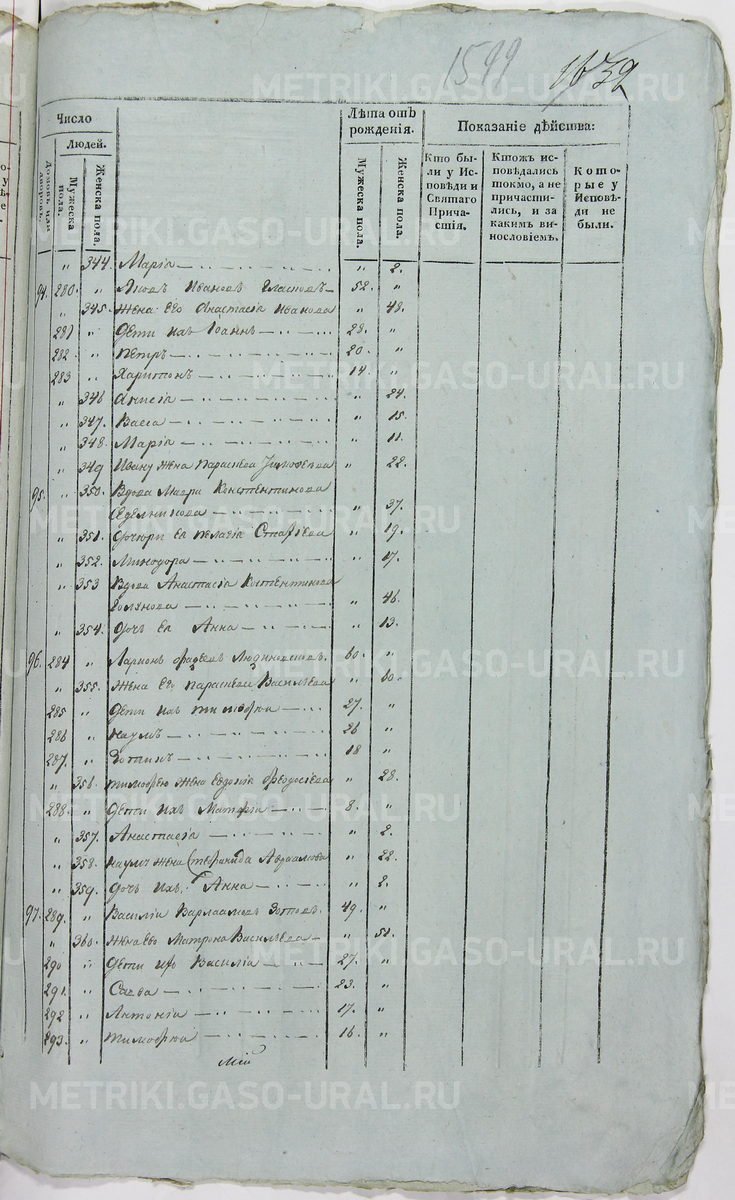 1599 1632
METRIKI.GASO-URAL.RU
Число
Людей.
Домовъ или дворовъ.
Мужеска пола.
Женска пола.
Лѣта отъ рожденія.
Мужеска пола.
Женска пола.
Показаніе дѣйства:
Кто были у Исповѣди и Святаго Причастія.
Ктожъ исповѣдались токмо, а не причастились, и за какимъ винословіемъ.
Которые у Исповѣди не были.
" 344. Марія " 2.
94. 280. " Яковъ Ивановъ 52. "
" 345. Жена его Анастасія Иванова " 48.
281 " Дети ихъ Іоаннъ 28. "
282. " Петръ 20. "
283 " Харитонъ 14. "
" 346 Анисіа " 24.
" 347. Васса " 15.
" 348. Маріа " 11.
" 349 Ивану жена Параскева " 22.
95. " 350. Вдова Константинова
" 37.
" 351. Дочери ея Пелагія " 19.
" 352. Минодора " 17.
" 353 Вдова Анастасіа
" 46.
" 354. Дочь ея Анна " 13.
96. 284 " Ларионъ 60. "
" 355. Жена его Параскева Васильева " 60.
285 " Дети ихъ Тимофеи 27. "
286 " Наумъ 26 "
287. " 18 "
" 356. Тимофею жена Евдокіа " 28.
288. " Дети ихъ 8. "
" 357. Анастасіа " 2.
" 358. Науму жена " 22.
" 359. Дочь ихъ Анна " 2.
97. 289. " Василіи Варлаамовъ Зотовъ 49. "
" 360. Жена его Матрона Васильева " 51.
290 " Дети Василіи 27. "
291. " Савва 23. "
292 " Антоніи 17. "
293. " Тимофеи 16. "